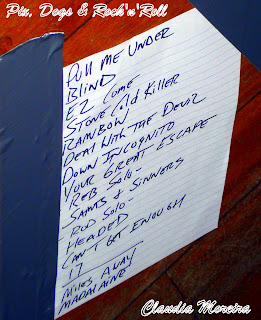 Pix, Dogs & Rock'n'Roll
PULL ME UNDER
BLIND
EZ COME
STONE COLD KILLER
RAINBOW
DEAL WITH THE DEVIL
DOWN INCOGNITO
YOUR GREAT ESCAPE
REB SOLO-
SAINTS & SINNERS
ROD SOLO-
HEADED
CAN'T GET ENOUGH
17
MILES AWAY
MADALAINE
Claudia Moreira